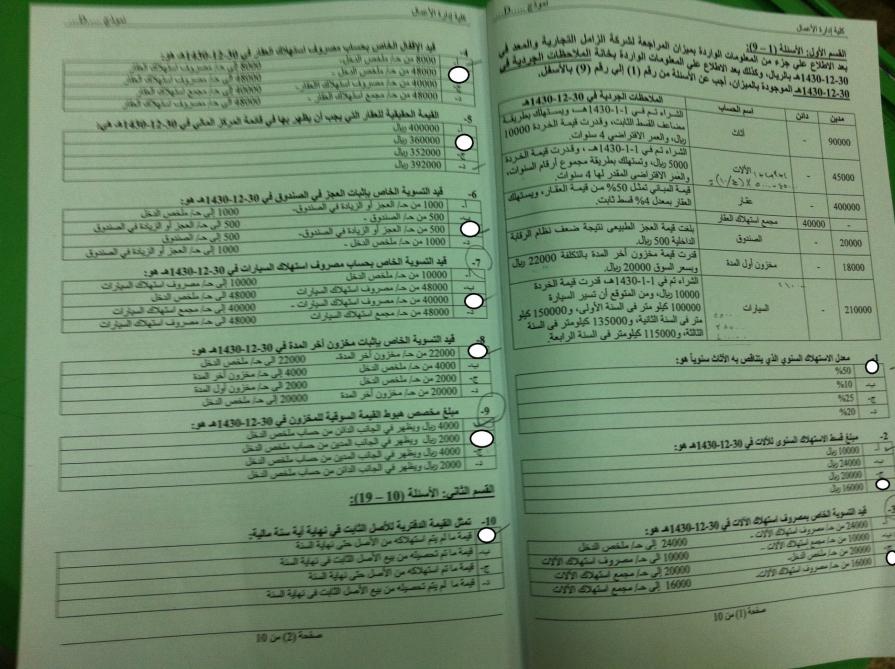 كلية إدارة الأعمال
نموذج ......B
القسم الأول: الأسئلة (1 – 9):
بعد الاطلاع على جزء من المعلومات الواردة بميزان المراجعة لشركة الزامل التجارية والمعد في
30-12-1430هـ بالريال، وكذلك بعد الاطلاع على المعلومات الواردة بخانة الملاحظات الجردية في
30-12-1430هـ الموجودة بالميزان، أجب عن الأسئلة من رقم (1) إلى رقم (9) بالأسفل.
مدين دائن اسم الحساب الملاحظات الجردية في 30-12-1430هـ
90000 - أثاث الشراء تم في 1-1-1430هـ، ويستهلك بطريقة
مضاعف القسط الثابت، وقدرت قيمة الخردة 10000
ريال، والعمر الافتراضي 4 سنوات.
45000 - الآلات الشراء تم في 1-1-1430هـ، وقدرت قيمة الخردة
5000 ريال، وتستهلك بطريقة مجموع أرقام السنوات،
والعمر الافتراضي المقدر لها 4 سنوات.
400000 - عقار قيمة المباني تمثل 50% من قيمة العقار، ويستهلك
العقار بمعدل 4% قسط ثابت.
- 40000 مجمع استهلاك العقار
20000 - الصندوق بلغت قيمة العجز الطبيعي نتيجة ضعف نظام الرقابة
الداخلية 500 ريال.
18000 - مخزون أول المدة قدرت قيمة مخزون آخر المدة بالتكلفة 22000 ريال
وبسعر السوق 20000 ريال.
210000 - السيارات الشراء تم في 1-1-1430هـ، قدرت قيمة الخردة
10000 ريال، ومن المتوقع أن تسير السيارة
100000 كيلومتر في السنة الأولى، و150000 كيلو
متر في السنة الثانية، و135000 كيلومتر في السنة
الثالثة، و115000 كيلومتر في السنة الرابعة.
1- معدل الاستهلاك السنوي الذي يتناقص به الأثاث سنوياً هو:
%50
ب- %10
ج- %25
د- %20
2- مبلغ قسط الاستهلاك السنوي للآلات في 30-12-1430هـ هو:
أ- 10000 ريال
ب- 24000 ريال
ج- 20000 ريال
16000 ريال
3- قيد التسوية الخاص بمصروف استهلاك الآلات في 30-12-1430هـ هو:
24000 من حـ/ مصروف استهلاك الآلات - 24000 إلى حـ/ ملخص الدخل
10000 من حـ/ مجمع استهلاك الآلات - 10000 إلى حـ/ مصروف استهلاك الآلات
20000 من حـ/ ملخص الدخل- 20000 إلى حـ/ مجمع استهلاك الآلات
16000 من حـ/ مصروف استهلاك الآلات- 16000 إلى حـ/ مجمع استهلاك الآلات
صفحة (1) من 10
كلية إدارة الأعمال
نموذج ......B
4- قيد الإقفال الخاص بحساب مصروف استهلاك العقار في 30-12-1430هـ هو:
8000 من حـ/ ملخص الدخل- 8000 إلى حـ/ مصروف استهلاك العقار
48000 من حـ/ ملخص الدخل - 48000 إلى حـ/ مصروف استهلاك العقار
40000 من حـ/ مصروف استهلاك العقار- 40000 إلى حـ/ مجمع استهلاك العقار
د- 48000 من حـ/ مجمع استهلاك العقار - 48000 إلى حـ/ مصروف استهلاك العقار
5- القيمة الحقيقية للعقار التي يجب أن يظهر بها في قائمة المركز المالي في 30-12-1430هـ هي:
أ- 400000 ريال
360000 ريال
352000 ريال
د- 392000 ريال
6- قيد التسوية الخاص بإثبات العجز في الصندوق في 30-12-1430هـ هو:
أ- 1000 من حـ/ العجز أو الزيادة في الصندوق- 1000 إلى حـ/ ملخص الدخل
500 من حـ/ الصندوق - 500 إلى حـ/ العجز أو الزيادة في الصندوق
500 من حـ/ العجز أو الزيادة في الصندوق- 500 إلى حـ/ الصندوق
د- 1000 من حـ/ ملخص الدخل - 1000 إلى حـ/ العجز أو الزيادة في الصندوق
7- قيد التسوية الخاص بحساب مصروف استهلاك السيارات في 30-12-1430هـ هو:
أ- 10000 من حـ/ ملخص الدخل 10000 إلى حـ/ مصروف استهلاك السيارات
ب- 48000 من حـ/ مصروف استهلاك السيارات 48000 إلى حـ/ ملخص الدخل
40000 من حـ/ مصروف استهلاك السيارات - 40000 إلى حـ/ مجمع استهلاك السيارات
د- 48000 من حـ/ مجمع استهلاك السيارات 48000 إلى حـ/ مصروف استهلاك السيارات
8- قيد التسوية الخاص بإثبات مخزون آخر المدة في 30-12-1430هـ هو:
22000 من حـ/ مخزون آخر المدة- 22000 إلى حـ/ ملخص الدخل
ب- 4000 من حـ/ ملخص الدخل 4000 إلى حـ/ مخزون آخر المدة
ج- 2000 من حـ/ ملخص الدخل 2000 إلى حـ/ مخزون أول المدة
د- 20000 من حـ/ مخزون آخر المدة 20000 إلى حـ/ ملخص الدخل
9- مبلغ مخصص هبوط القيمة السوقية للمخزون في 30-12-1430هـ هو:
4000 ريال ويظهر في الجانب الدائن من حساب ملخص الدخل
2000 ريال ويظهر في الجانب المدين من حساب ملخص الدخل
ج- 4000 ريال ويظهر في الجانب المدين من حساب ملخص الدخل
د- 2000 ريال ويظهر في الجانب الدائن من حساب ملخص الدخل
القسم الثاني: الأسئلة (10 – 19):
10- تمثل القيمة الدفترية للأصل الثابت في نهاية أية سنة مالية:
قيمة ما لم يتم استهلاكه من الأصل حتى نهاية السنة
ب- قيمة ما تم تحصيله من بيع الأصل الثابت في نهاية السنة
ج- قيمة ما تم استهلاكه من الأصل حتى نهاية السنة
د- قيمة ما لم يتم تحصيله من بيع الأصل الثابت في نهاية السنة
صفحة (2) من 10